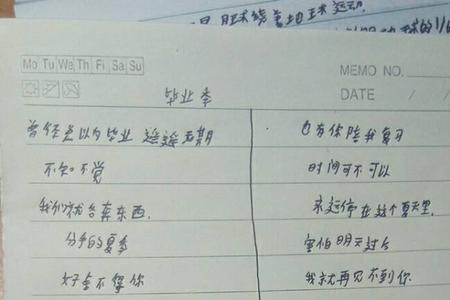 是月球绕着地球运动
Mo Tu We Th Fi Sa Su
MEMO NO.
DATE / /
毕业季
曾经总以为毕业 遥遥无期
不知不觉
我们就各奔东西
分手的夏季
好舍不得你
也有你陪我复习
时间可不可以
永远停在这个夏天里
害怕明天过后
我就再见不到你